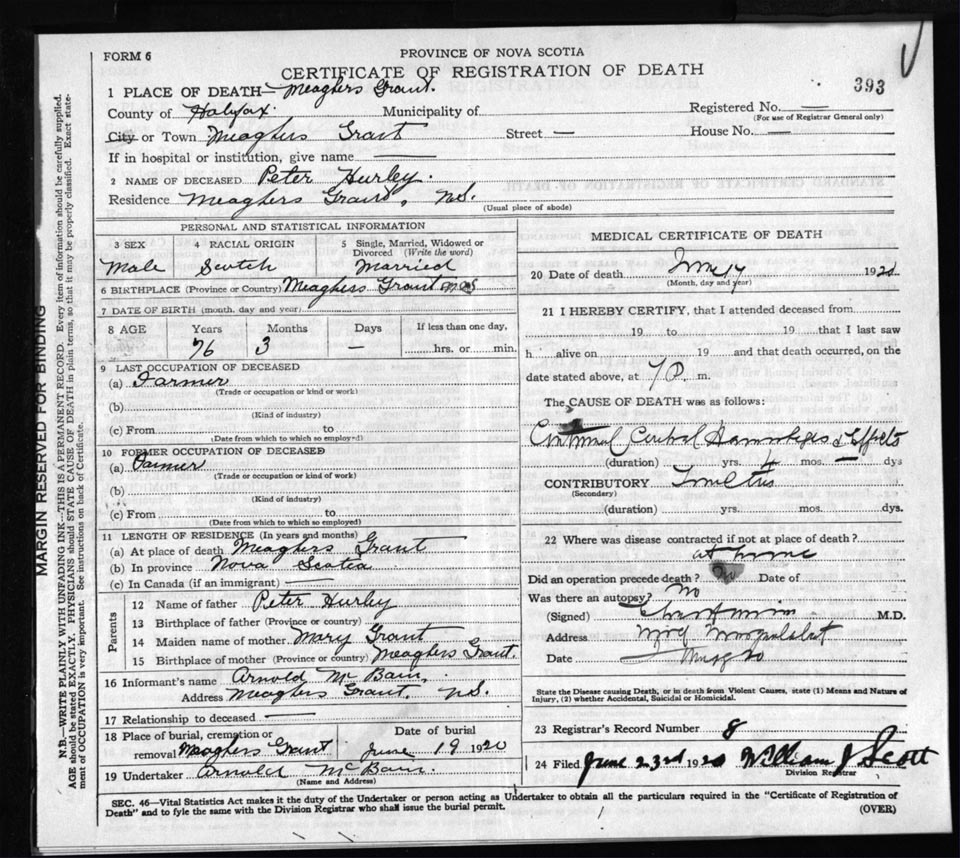 FORM 6
PROVINCE OF NOVA SCOTIA
CERTIFICATE OF REGISTRATION OF DEATH
393
1 PLACE OF DEATH— Meaghers Grant.
County of Halifax. Municipality of
Registered No. —
(For use of Registrar General only)
City or Town Meaghers Grant Street — House No. —
If in hospital or institution, give name —
2 NAME OF DECEASED Peter Hurley.
Residence Meaghers Grant, N.S.
(Usual place of abode)
PERSONAL AND STATISTICAL INFORMATION
3 SEX 4 RACIAL ORIGIN 5 Single, Married, Widowed or Divorced (Write the word)
Male Scotch Married
6 BIRTHPLACE (Province or Country) Meaghers Grant
7 DATE OF BIRTH (month, day and year)
8 AGE Years Months Days If less than one day,
76 3 — hrs. or min.
9 LAST OCCUPATION OF DECEASED
(a) Farmer
(Trade or occupation or kind or work)
(b)
(Kind of industry)
(c) From to
(Date from which to which so employed)
10 FORMER OCCUPATION OF DECEASED
(a) Farmer
(Trade or occupation or kind of work)
(b)
(Kind of industry)
(c) From to
(Date from which to which so employed)
11 LENGTH OF RESIDENCE (In years and months)
(a) At place of death Meaghers Grant
(b) In province Nova Scotia
(c) In Canada (if an immigrant) —
Parents
12 Name of father Peter Hurley
13 Birthplace of father (Province or country)
14 Maiden name of mother Mary Grant
15 Birthplace of mother (Province or country) Meaghers Grant.
16 Informant's name Arnold McBain,
Address Meaghers Grant, N.S.
17 Relationship to deceased —
18 Place of burial, cremation or removal Meaghers Grant
Date of burial
June 19 1920
19 Undertaker Arnold McBain.
(Name and Address)
MEDICAL CERTIFICATE OF DEATH
20 Date of death 192
(Month, day and year)
21 I HEREBY CERTIFY, that I attended deceased from
19 to 19 that I last saw
h alive on 19 and that death occurred, on the
date stated above, at 7 P. m.
The CAUSE OF DEATH was as follows:
Hemorrhages & Effects
(duration) yrs. 4 mos. — dys
CONTRIBUTORY
(Secondary)
(duration) yrs. mos. dys.
22 Where was disease contracted if not at place of death?
at home
Did an operation precede death? Date of
Was there an autopsy? No
(Signed) M.D.
Address
Date
State the Disease causing Death, or in death from Violent Causes, state (1) Means and Nature of
Injury, (2) whether Accidental, Suicidal or Homicidal.
23 Registrar's Record Number 8
24 Filed June 23rd 1920 William J Scott
Division Registrar
SEC. 46—Vital Statistics Act makes it the duty of the Undertaker or person acting as Undertaker to obtain all the particulars required in the "Certificate of Registration of
Death" and to fyle the same with the Division Registrar who shall issue the burial permit.
(OVER)
MARGIN RESERVED FOR BINDING
N.B.—WRITE PLAINLY WITH UNFADING INK—THIS IS A PERMANENT RECORD. Every item of information should be carefully supplied.
AGE should be stated EXACTLY. PHYSICIANS should STATE CAUSE OF DEATH in plain terms, so that it may be properly classified. Exact state-
ment of OCCUPATION is very important. See instructions on back of Certificate.